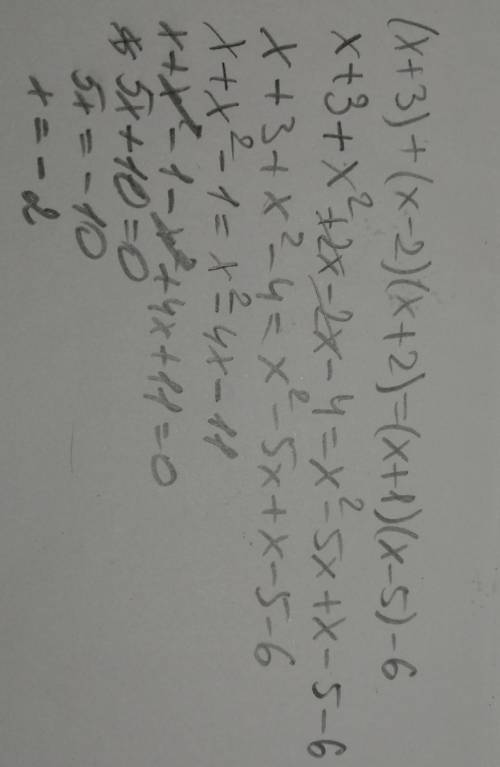 (x+3)+(x-2)(x+2)=(x+1)(x-5)-6
x+3+x²+2x-2x-4=x²-5x+x-5-6
x+3+x²-4=x²-5x+x-5-6
x+x²-1=x²-4x-11
x+x²-1-x²+4x+11=0
5x+10=0
5x=-10
x=-2